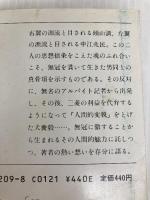 右翼の源流と目される頭山満、左翼
の源流と目される中江兆民。この二
人の思想信条をこえた魂のふれ合い
こそ、無冠を貫いて生きた男の
真骨頂を示すものである。その反対
に、無名のアルバイト記者から出発
し、その後、三菱の利益を代弁するよう
になって『人間的変貌』をとげ
た犬養毅……。無冠に徹することか
ら生まれるその人間的魅力に託しつ
つ、著者の熱い想いを存分に語る。
209-8 C0121 ¥440E
定価440円